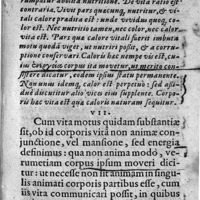 rumpatur abolita nutritione. De vita ratio est
contraria. Vivit pars quæcunq, nutritur, & vi-
talis calore prædita est: unde vividus quoq, co-
lor est. Nec nutritio tamen, nec color, nec calor
vita est. Pars quæ calore vitali fuerit imbuta
motu quodā agitat, ut nutriri possit, & a corru-
ptione conservari Calori hac nempe vis est, cum
corpus id movetur, ut merito con-
sistere dicatur, eodem ipsius statu permanente.
Nonunus idemq, calor est perpetuò: sed aſsi-
due dissipatur alio vicis eius supplente. Corpo-
ris hac vita est quæ caloris naturam sequitur.
VII.
Cum vita motus quidam substantivo
sit, ob id corporis vitā non animæ con-
junctione, vel mansione, sed energia
definimus: qua non anima modò, ve-
rumetiam corpus ipsum moveri dici-
tur: ut necesse non sit animam in singu-
lis animati corporis partibus esse, cum
iis vita communicari possit, in quibus